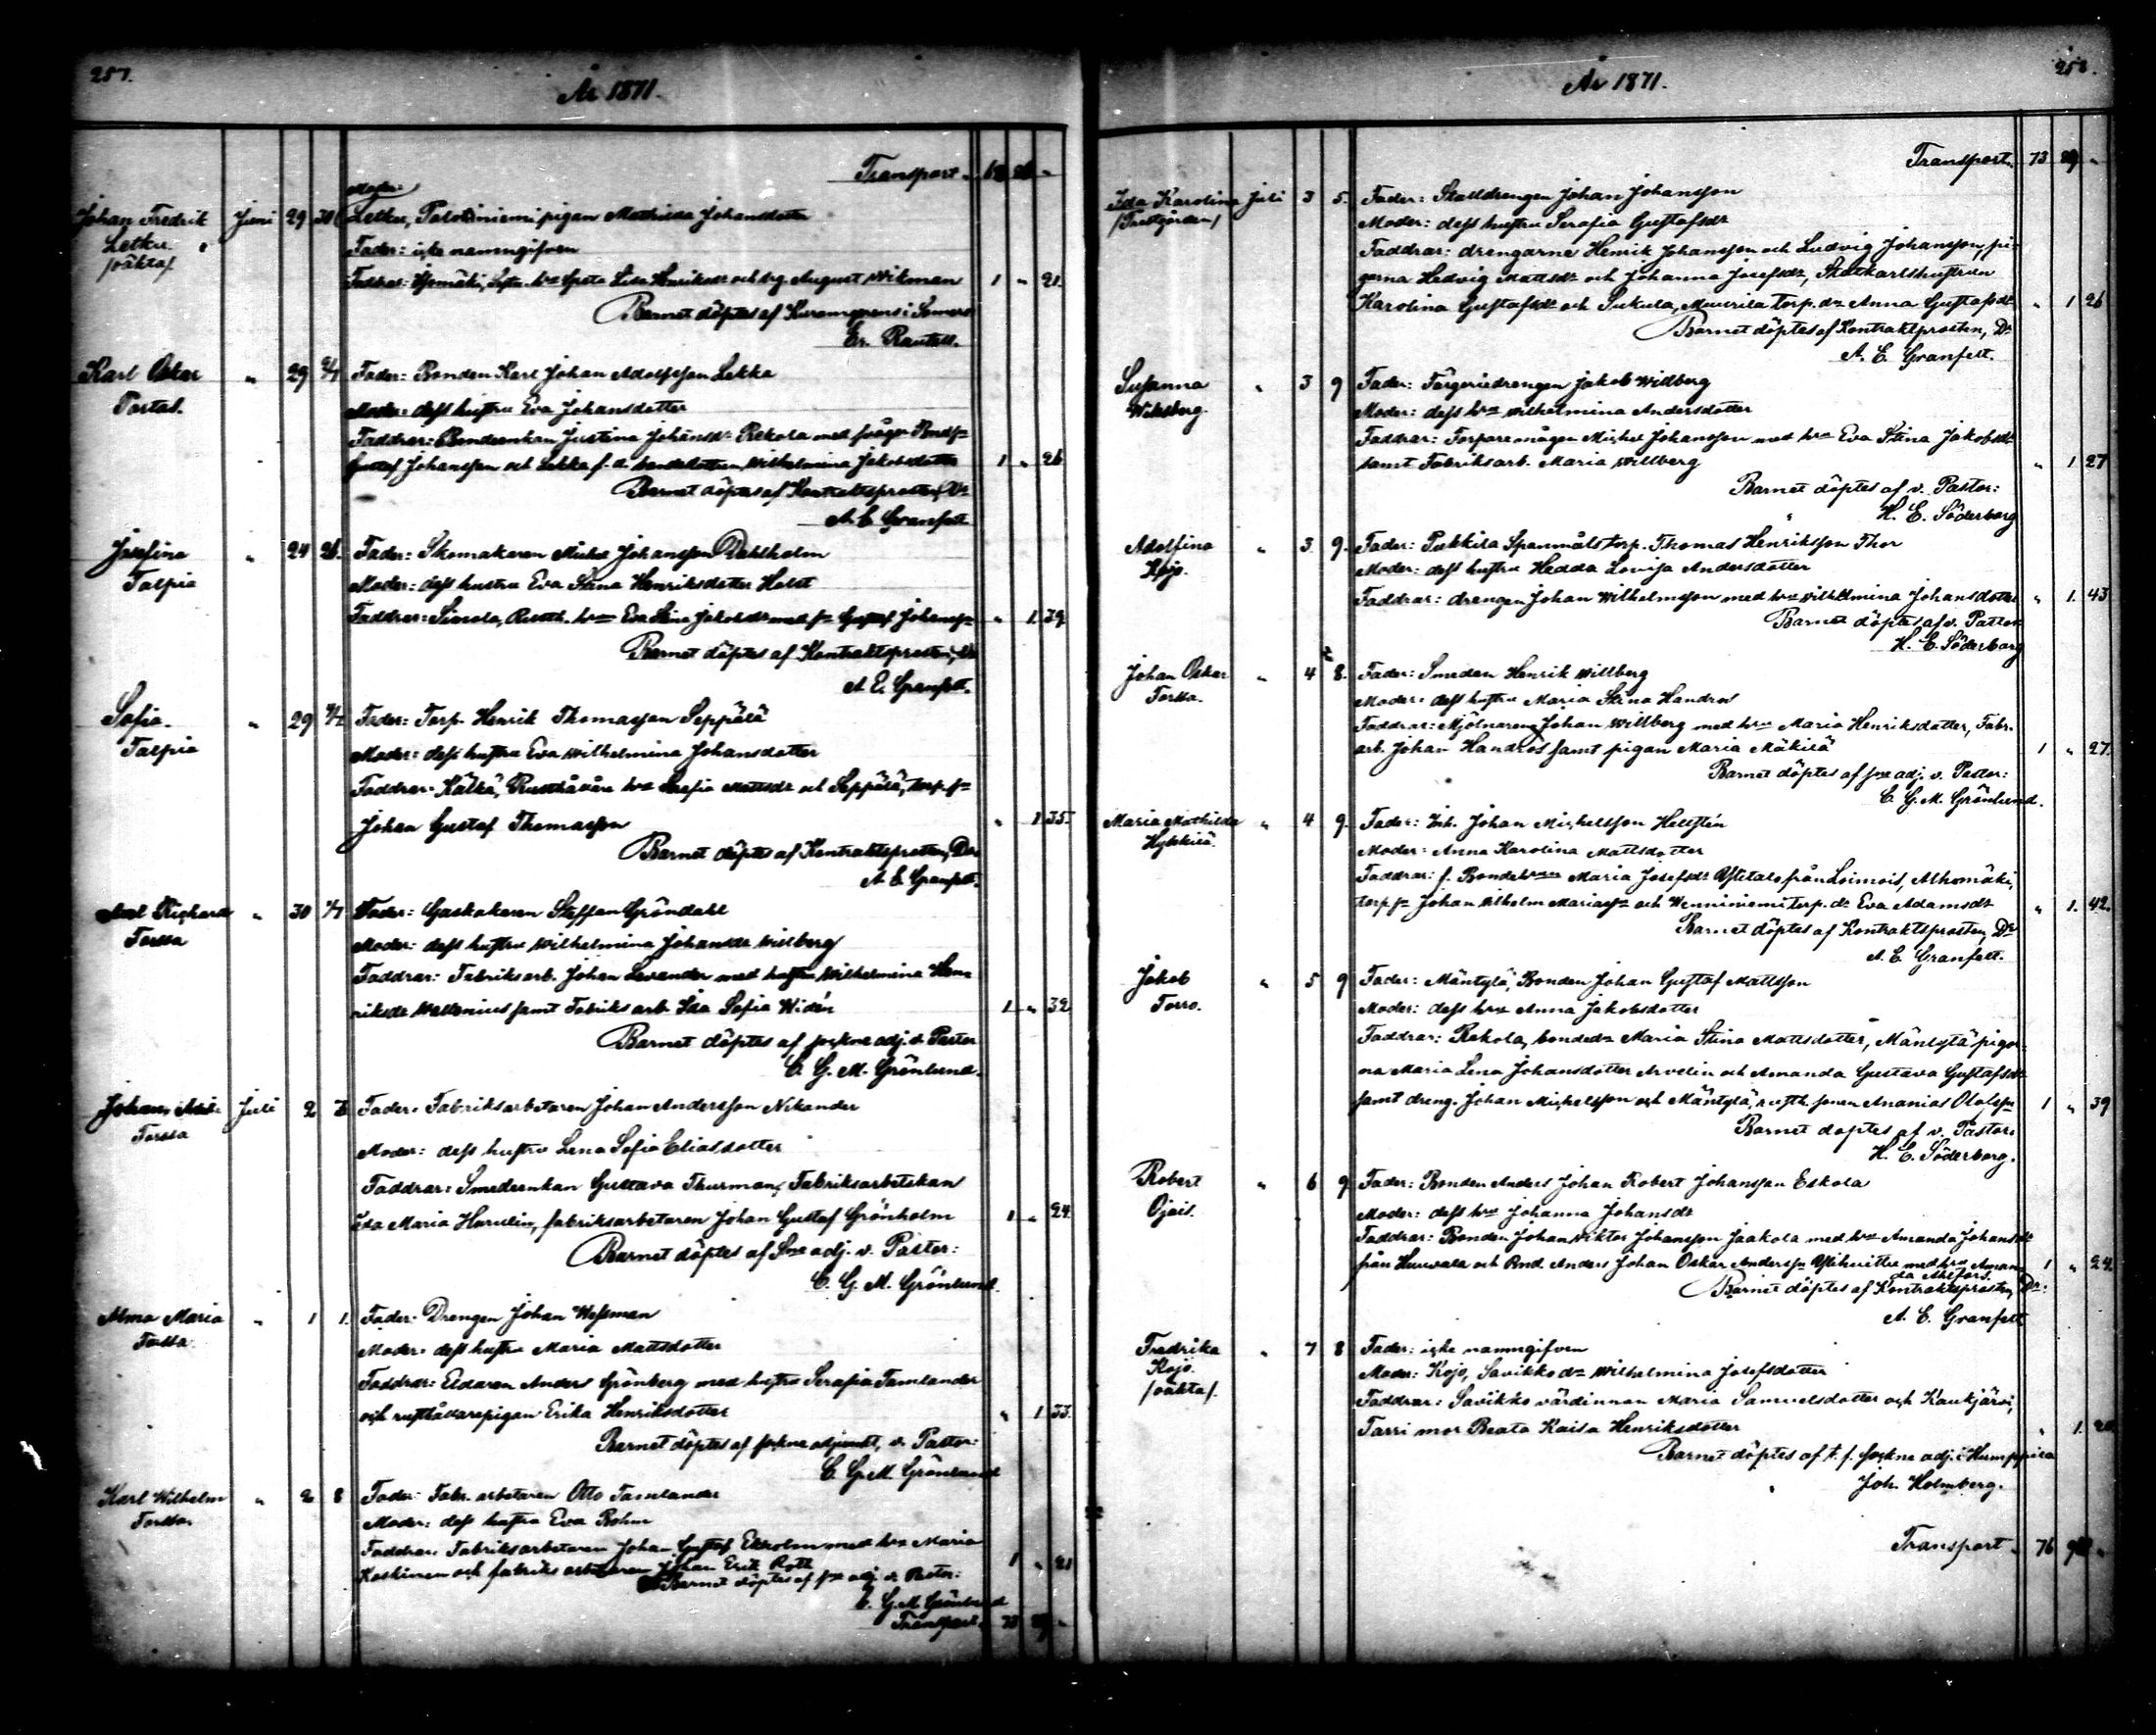 257.
År 1871.
Transport 
Johan Fredrik Juni 29 30 Moder: Letku, pigan Mathilda Johansdotter
Letku.
/oäkta/
Fader: icke namngifven
Faddrar: Lisa Henriksdr och drg. August Wikman 1 " 21.
Barnet döptes af i Somero
Karl Oskar " 29 Fader: Bonden Karl Johan Adolfsson Lekka
Portas.
Moder: dess hustru Eva Johansdotter
Faddrar: Bondeenkan Justina Johansdr Rekola med
Gustaf Johansson och Lekka f. d. Wilhelmina Jakobsdotter 1 " 26
Barnet döptes af Kontraktsprosten, Dr
A. E. Granfelt
Josefina " 24 26. Fader: Skomakaren Michel Johansson Dahlholm
Talpia
Moder: dess hustru Eva Stina Henriksdotter Holst
Faddrar: Simola, hru Eva Stina Jakobsdr med Gustaf " 1. 39
Barnet döptes af Kontraktsprosten, Dr
A. E. Granfelt.
Sofia. " 29 Fader: Torp. Henrik Thomasson Seppälä
Talpia
Moder: dess hustru Eva Wilhelmina Johansdotter
Faddrar: Kälkä, Rusthållare hru Sofia Mattsdr och Seppälä, torp.
Johan Gustaf Thomasson " 1 35.
Barnet döptes af Kontraktsprosten, Dr
A. E. Granfelt.
Axel Richard " 30 1/7 Fader: Gaskokaren Steffan Gröndahl
Forssa
Moder: dess hustru Wilhelmina Johansdr Willberg
Faddrar: Fabriksarb. Johan Levander med hustru Wilhelmina Hen-
riksdr Wallenius samt Fabriksarb. Ida Sofia Widén 1 " 32
Barnet döptes af sockne adj. v. Pastor
C. G. M. Grönlund.
Johan Juli 2 Fader: Fabriksarbetaren Johan Andersson Nikander
Forssa
Moder: dess hustru Lena Sofia Eliasdotter
Faddrar: Smedeenkan Gustava Thurman, Fabriksarbeterskan
Ida Maria, fabriksarbetaren Johan Gustaf Grönholm 1 " 24.
Barnet döptes af Sne adj. v. Pastor:
C. G. M. Grönlund.
Alma Maria " 1 1. Fader: Drengen Johan Wessman
Forssa
Moder: dess hustru Maria Mattsdotter
Faddrar: Eldaren Anders Grönberg med hustru Serafia Tamlander
och rusthållarepigan Erika Henriksdotter " 1 33.
Barnet döptes af sockne adjunkt, v. Pastor:
C. G. M. Grönlund
Karl Wilhelm " 2 8 Fader: Fabr. arbetaren Otto Tamlander
Forssa.
Moder: dess hustru Eva Bohm
Faddrar: Fabriksarbetaren Johan Gustaf Ekholm med hru Maria
Koskinen och fabriksarbetaren Johan Erik Roth 1 " 21
Barnet döptes af sne adj. v. Pastor:
C. G. M. Grönlund
Transport 73
258.
År 1871.
Transport. 73
Ida Karolina Juli 3 5. Fader: Stalldrengen Johan Johansson
/Prestgården/
Moder: dess hustru Serafia Gustafsdr
Faddrar: drengarne Henrik Johansson och Ludvig Johansson, pi-
gorna Hedvig Mattsdr och Johanna Josefsdr, Statkarlshustrun
Karolina Gustafsdr och Sukula, Muurila torp. dr Anna Gustafsdr " 1 26
Barnet döptes af Kontraktprosten, Dr
A. E. Granfelt.
Susanna " 3 9 Fader: Färgeridrengen Jakob Widberg
Wiksberg.
Moder: dess hru Wilhelmina Andersdotter
Faddrar: Torparemågen Michel Johansson med hru Eva Stina Jakobsdr
samt Fabriksarb. Maria Willberg " 1 27
Barnet döptes af v. Pastor:
H. E. Söderborg
Adolfina " 3 9. Fader: Pukkila Spanmåls torp. Thomas Henriksson Thor
Kojo.
Moder: dess hustru Hedda Lovisa Andersdotter
Faddrar: drengen Johan Wilhelmsson med hru Wilhelmina Johansdotter " 1. 43
Barnet döptes af v. Pastor
H. E. Söderborg
Johan Oskar " 4 8. Fader: Smeden Henrik Willberg
Forssa.
Moder: dess hustru Maria Stina Handros
Faddrar: Mjölnaren Johan Willberg med hru Maria Henriksdotter, Fabr.
arb. Johan Handros samt pigan Maria Mäkilä 1 " 27.
Barnet döptes af sne adj. v. Pastor:
C. G. M. Grönlund.
Maria Mathilda " 4 9. Fader: Inh. Johan Michelsson Hellstén
Hykkilä.
Moder: Anna Karolina Mattsdotter
Faddrar: f. Bondehru Maria Josefsdr Ylitalo från Loimois, Alhomäki,
torp. Johan Wilhelm och Wenniniemi torp. dr Eva Adamsdr " 1. 42.
Barnet döptes af Kontraktsprosten, Dr
A. E. Granfelt.
Jakob " 5 9 Fader: Mäntylä, Bonden Johan Gustaf Mattsson
Torro.
Moder: dess hru Anna Jakobsdotter
Faddrar: Rekola, bondedr Maria Stina Mattsdotter, Mäntylä pigor-
na Maria Lena Johansdotter Arvelin och Amanda Gustava Gustafsdr
samt dreng. Johan Michelsson och Mäntylä, rusth. sonen Ananias 1 " 39
Barnet döptes af v. Pastor:
H. E. Söderborg.
Robert " 6 9 Fader: Bonden Anders Johan Robert Johansson Eskola
Ojais.
Moder: dess hru Johanna Johansdr
Faddrar: Bonden Johan Viktor Johansson Jaakola med hru Amanda Johansdr
från och Bnd. Anders Johan Oskar Anderss. med hru Aman- 1 " 24
da
Barnet döptes af Kontraktsprosten, Dr:
A. E. Granfelt
Fredrika " 7 8 Fader: icke namngifven
Kojo
/oäkta/.
Moder: Kojo, Savikko dr Wilhelmina Josefsdotter
Faddrar: Savikko värdinnan Maria Samuelsdotter och Kaukjärvi,
Tarri mor Beata Kaisa Henriksdotter " 1.
Barnet döptes af t. f. sockne adj. i Humppila
Joh. Holmberg.
Transport 76